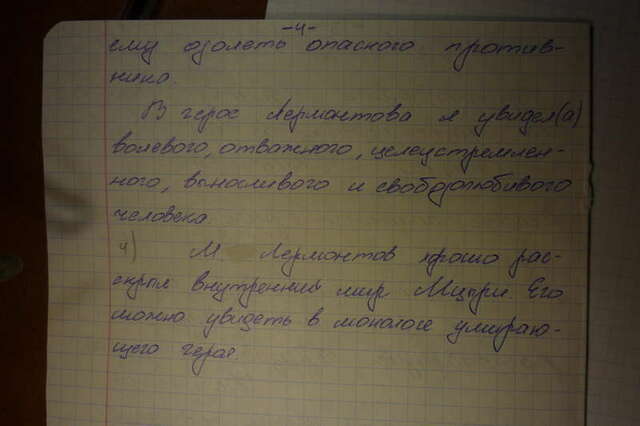 -4-
ему одолеть опасного против-
ника.
В герое Лермонтова я увидел(а)
волевого, отважного, целеустремлен-
ного, выносливого и свободолюбивого
человека
4) М. Лермонтов хорошо рас-
скрыл внутренний мир Мцыри. Его
можно увидеть в монологе умираю-
щего героя.